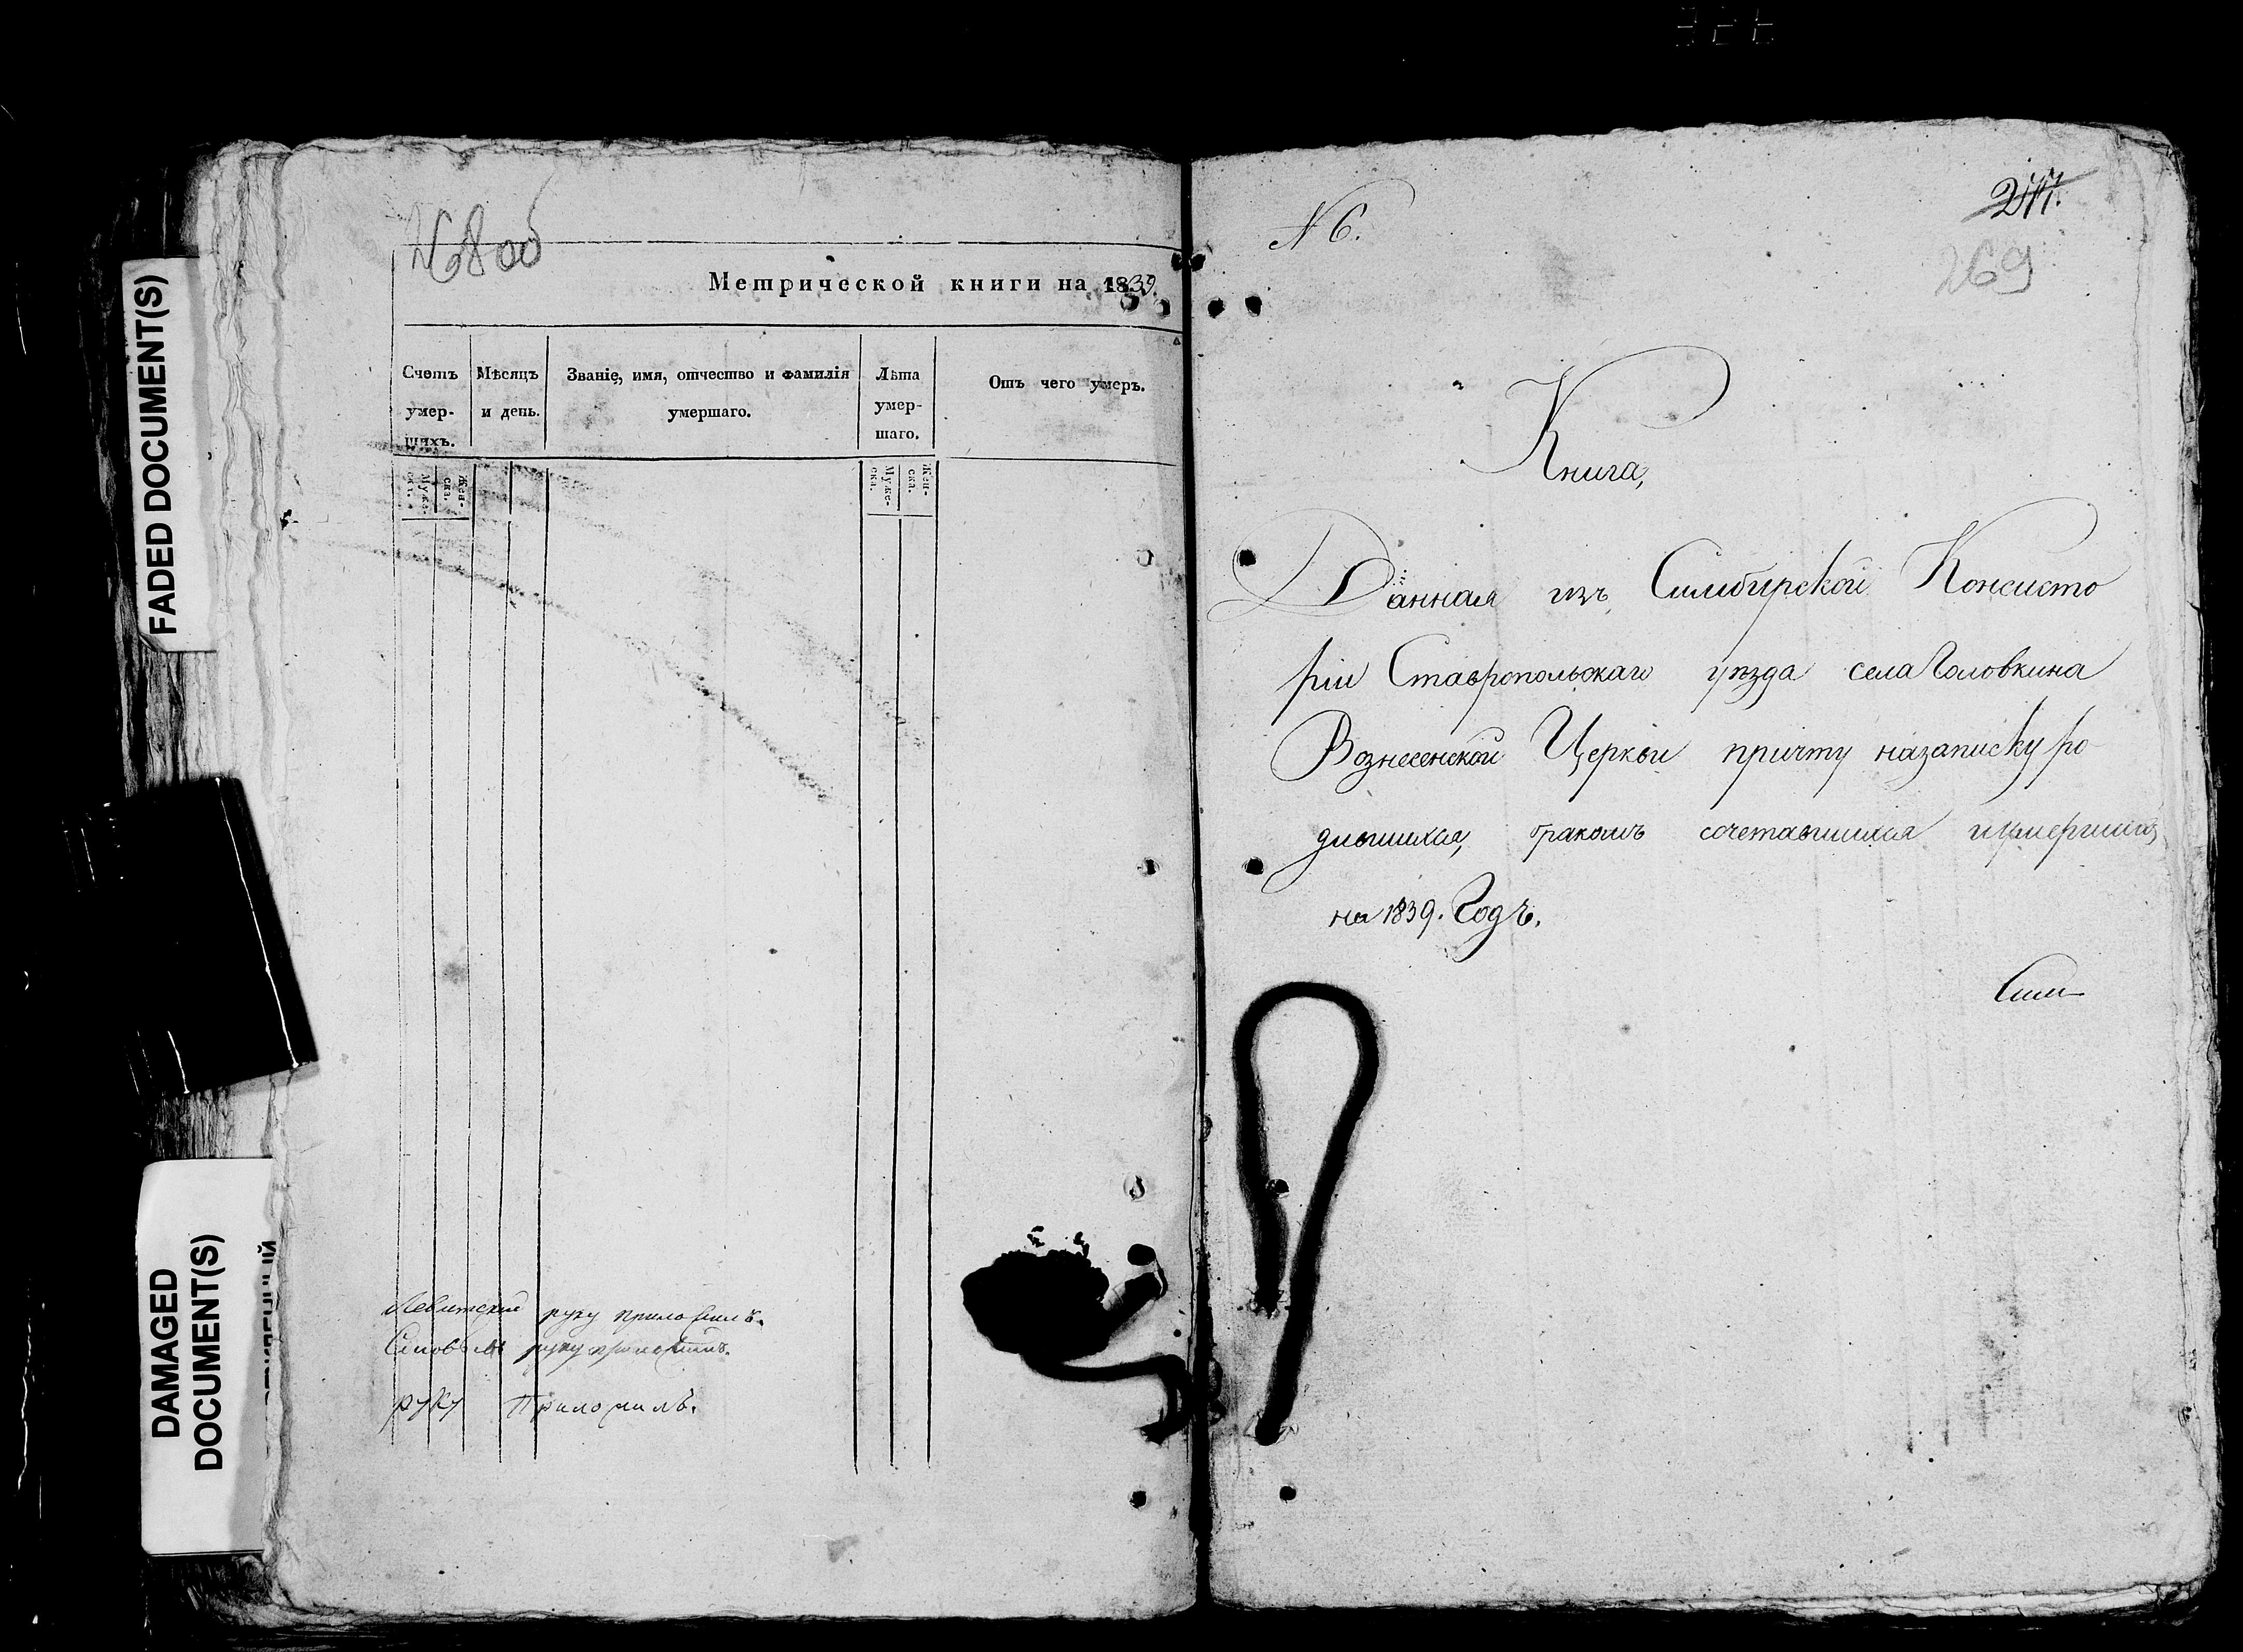 FADED DOCUMENT(S)
DAMAGED
DOCUMENT(S)
268 об
Метрической книги на 1839.
Счетъ умер- шихъ.
Мѣсяцъ и день.
Званіе, имя, отчество и фамилія умершаго.
Лѣта умер- шаго.
Отъ чего умеръ.
Муже- ска.
Жен- ска.
Муже- ска.
Жен- ска.
Левитскій руку приложилъ.
руку приложилъ.
руку приложилъ.
N 6.
247.
269
Книга,
Данная изъ Симбирской Консисто
ріи Ставропольскаго уѣзда села Головкина
Вознесенской Церкви причту на записку ро
дившихся, бракомъ сочетавшихся и умершихъ
на 1839. Годъ.
Сим-